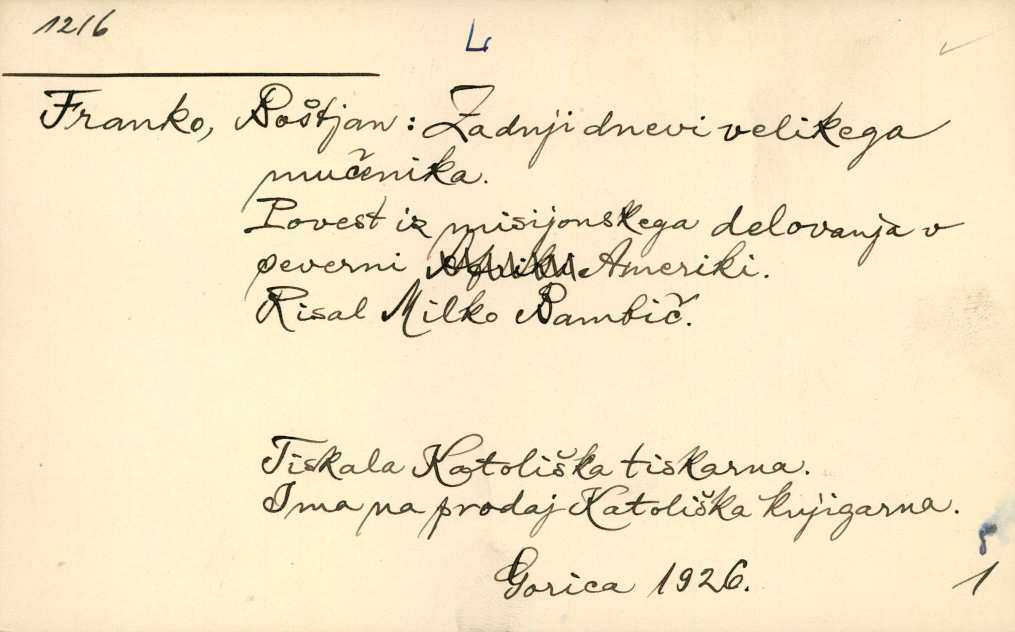 1216
L
Franko, Boštjan: Zadnji dnevi velikega
mučenika.
Povest iz misijonskega delovanja v
severni Ameriki.
Risal Milko Bambič.
Tiskala Katoliška tiskarna.
Ima na prodaj Katoliška knjigarna.
Gorica 1926.
1